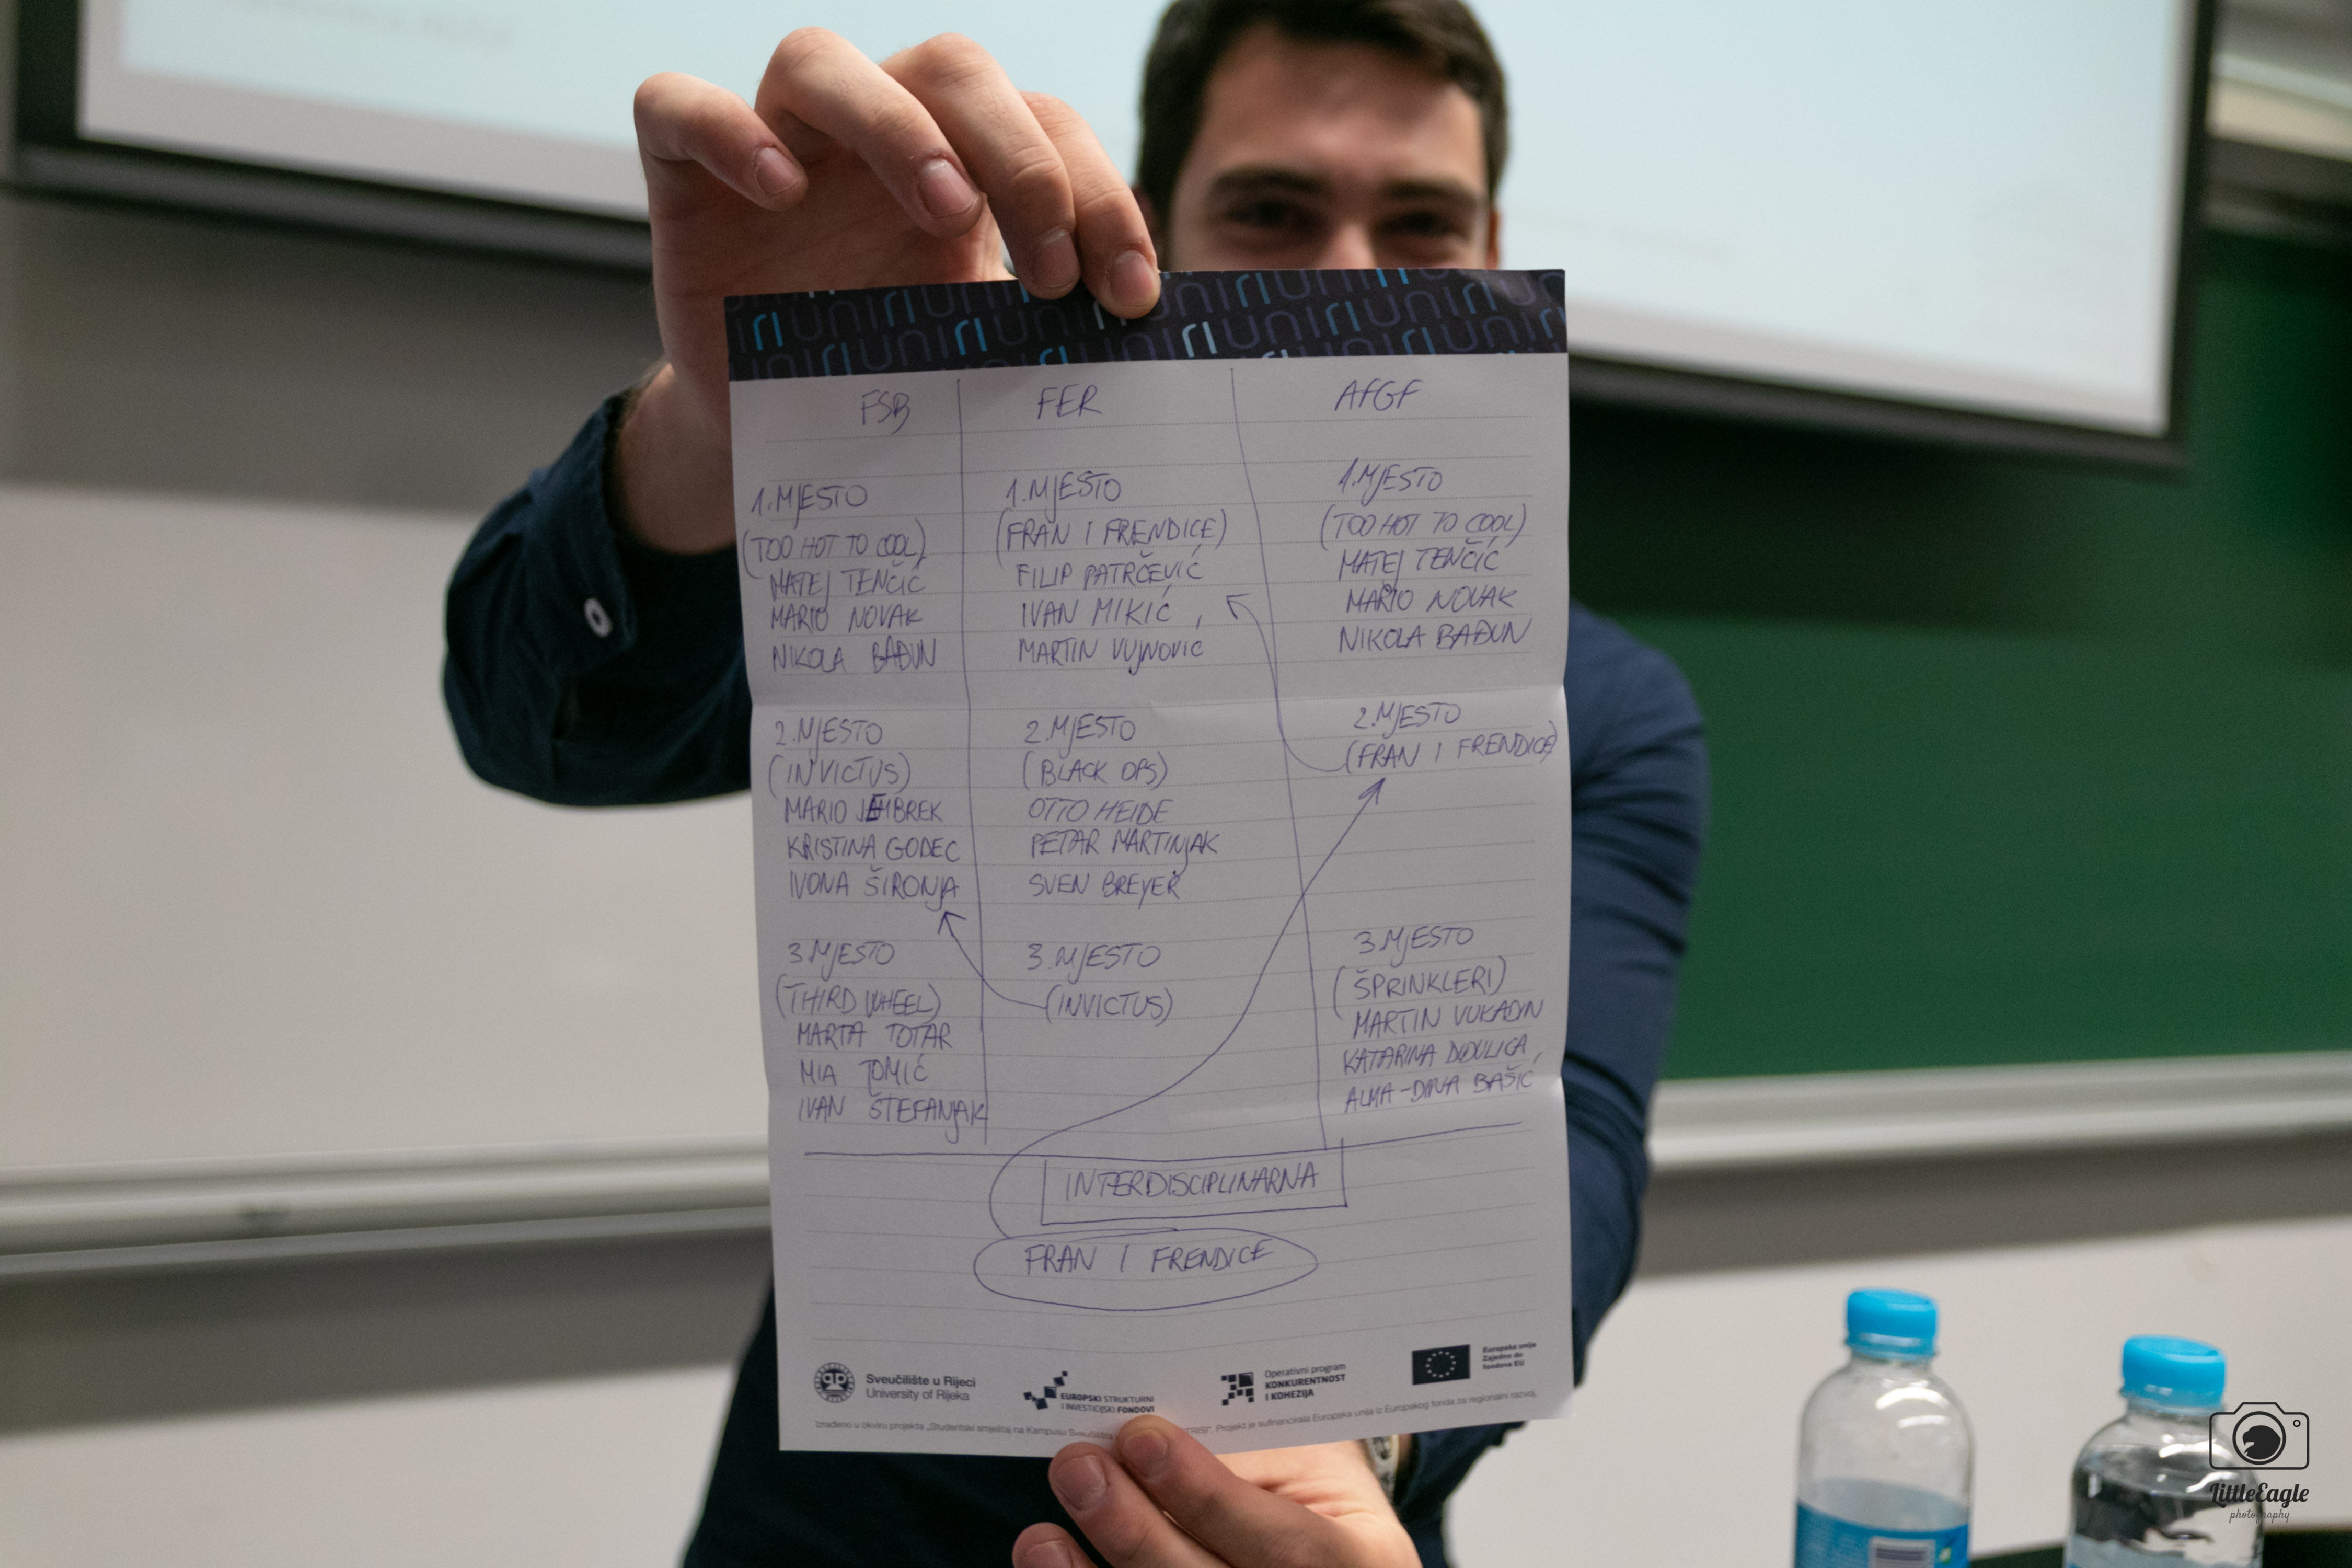 FSB
1.MJESTO
(TOO HOT TO COOL)
MATEJ TENČIĆ
MARIO NOVAK
NIKOLA BAĐUN
2.MJESTO
(INVICTUS)
MARIO JEMBREK
KRISTINA GODEC
IVONA ŠIRONJA
3.MJESTO
(THIRD WHEEL)
MARTA TOTAR
MIA TOMIĆ
IVAN ŠTEFANJAK
FER
1.MJESTO
(FRAN I FRENDICE)
FILIP PATRČEVIĆ
IVAN MIKIĆ
MARTIN VUJNOVIĆ
2.MJESTO
(BLACK OPS)
OTTO HEIDE
PETAR MARTINJAK
SVEN BREYER
3.MJESTO
(INVICTUS)
AFGF
1.MJESTO
(TOO HOT TO COOL)
MATEJ TENČIĆ
MARIO NOVAK
NIKOLA BAĐUN
2.MJESTO
(FRAN I FRENDICE)
3.MJESTO
(ŠPRINKLERI)
MARTIN VUKADIN
KATARINA DIDULICA
ALMA-DINA BAŠIĆ
INTERDISCIPLINARNA
FRAN I FRENDICE
Sveučilište u Rijeci
University of Rijeka
EUROPSKI STRUKTURNI
I INVESTICIJSKI FONDOVI
Operativni program
KONKURENTNOST
I KOHEZIJA
Europska unija
Zajedno do
fondova EU
Izrađeno u okviru projekta „Studentski smještaj na Kampusu Sveučilišta TRIS)". Projekt je sufinancirala Europska unija iz Europskog fonda za regionalni razvoj.
LittleEagle
photography